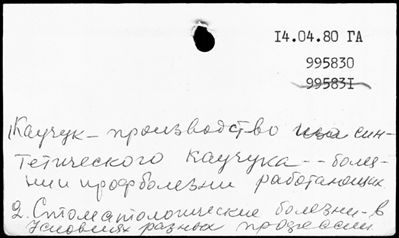 14.04.80 ГА
995830
995831
1) Каучук – производство син-
тетического каучука – – болез-
ни и профболезни работающих.
2. Стоматологические болезни – в
условиях разных